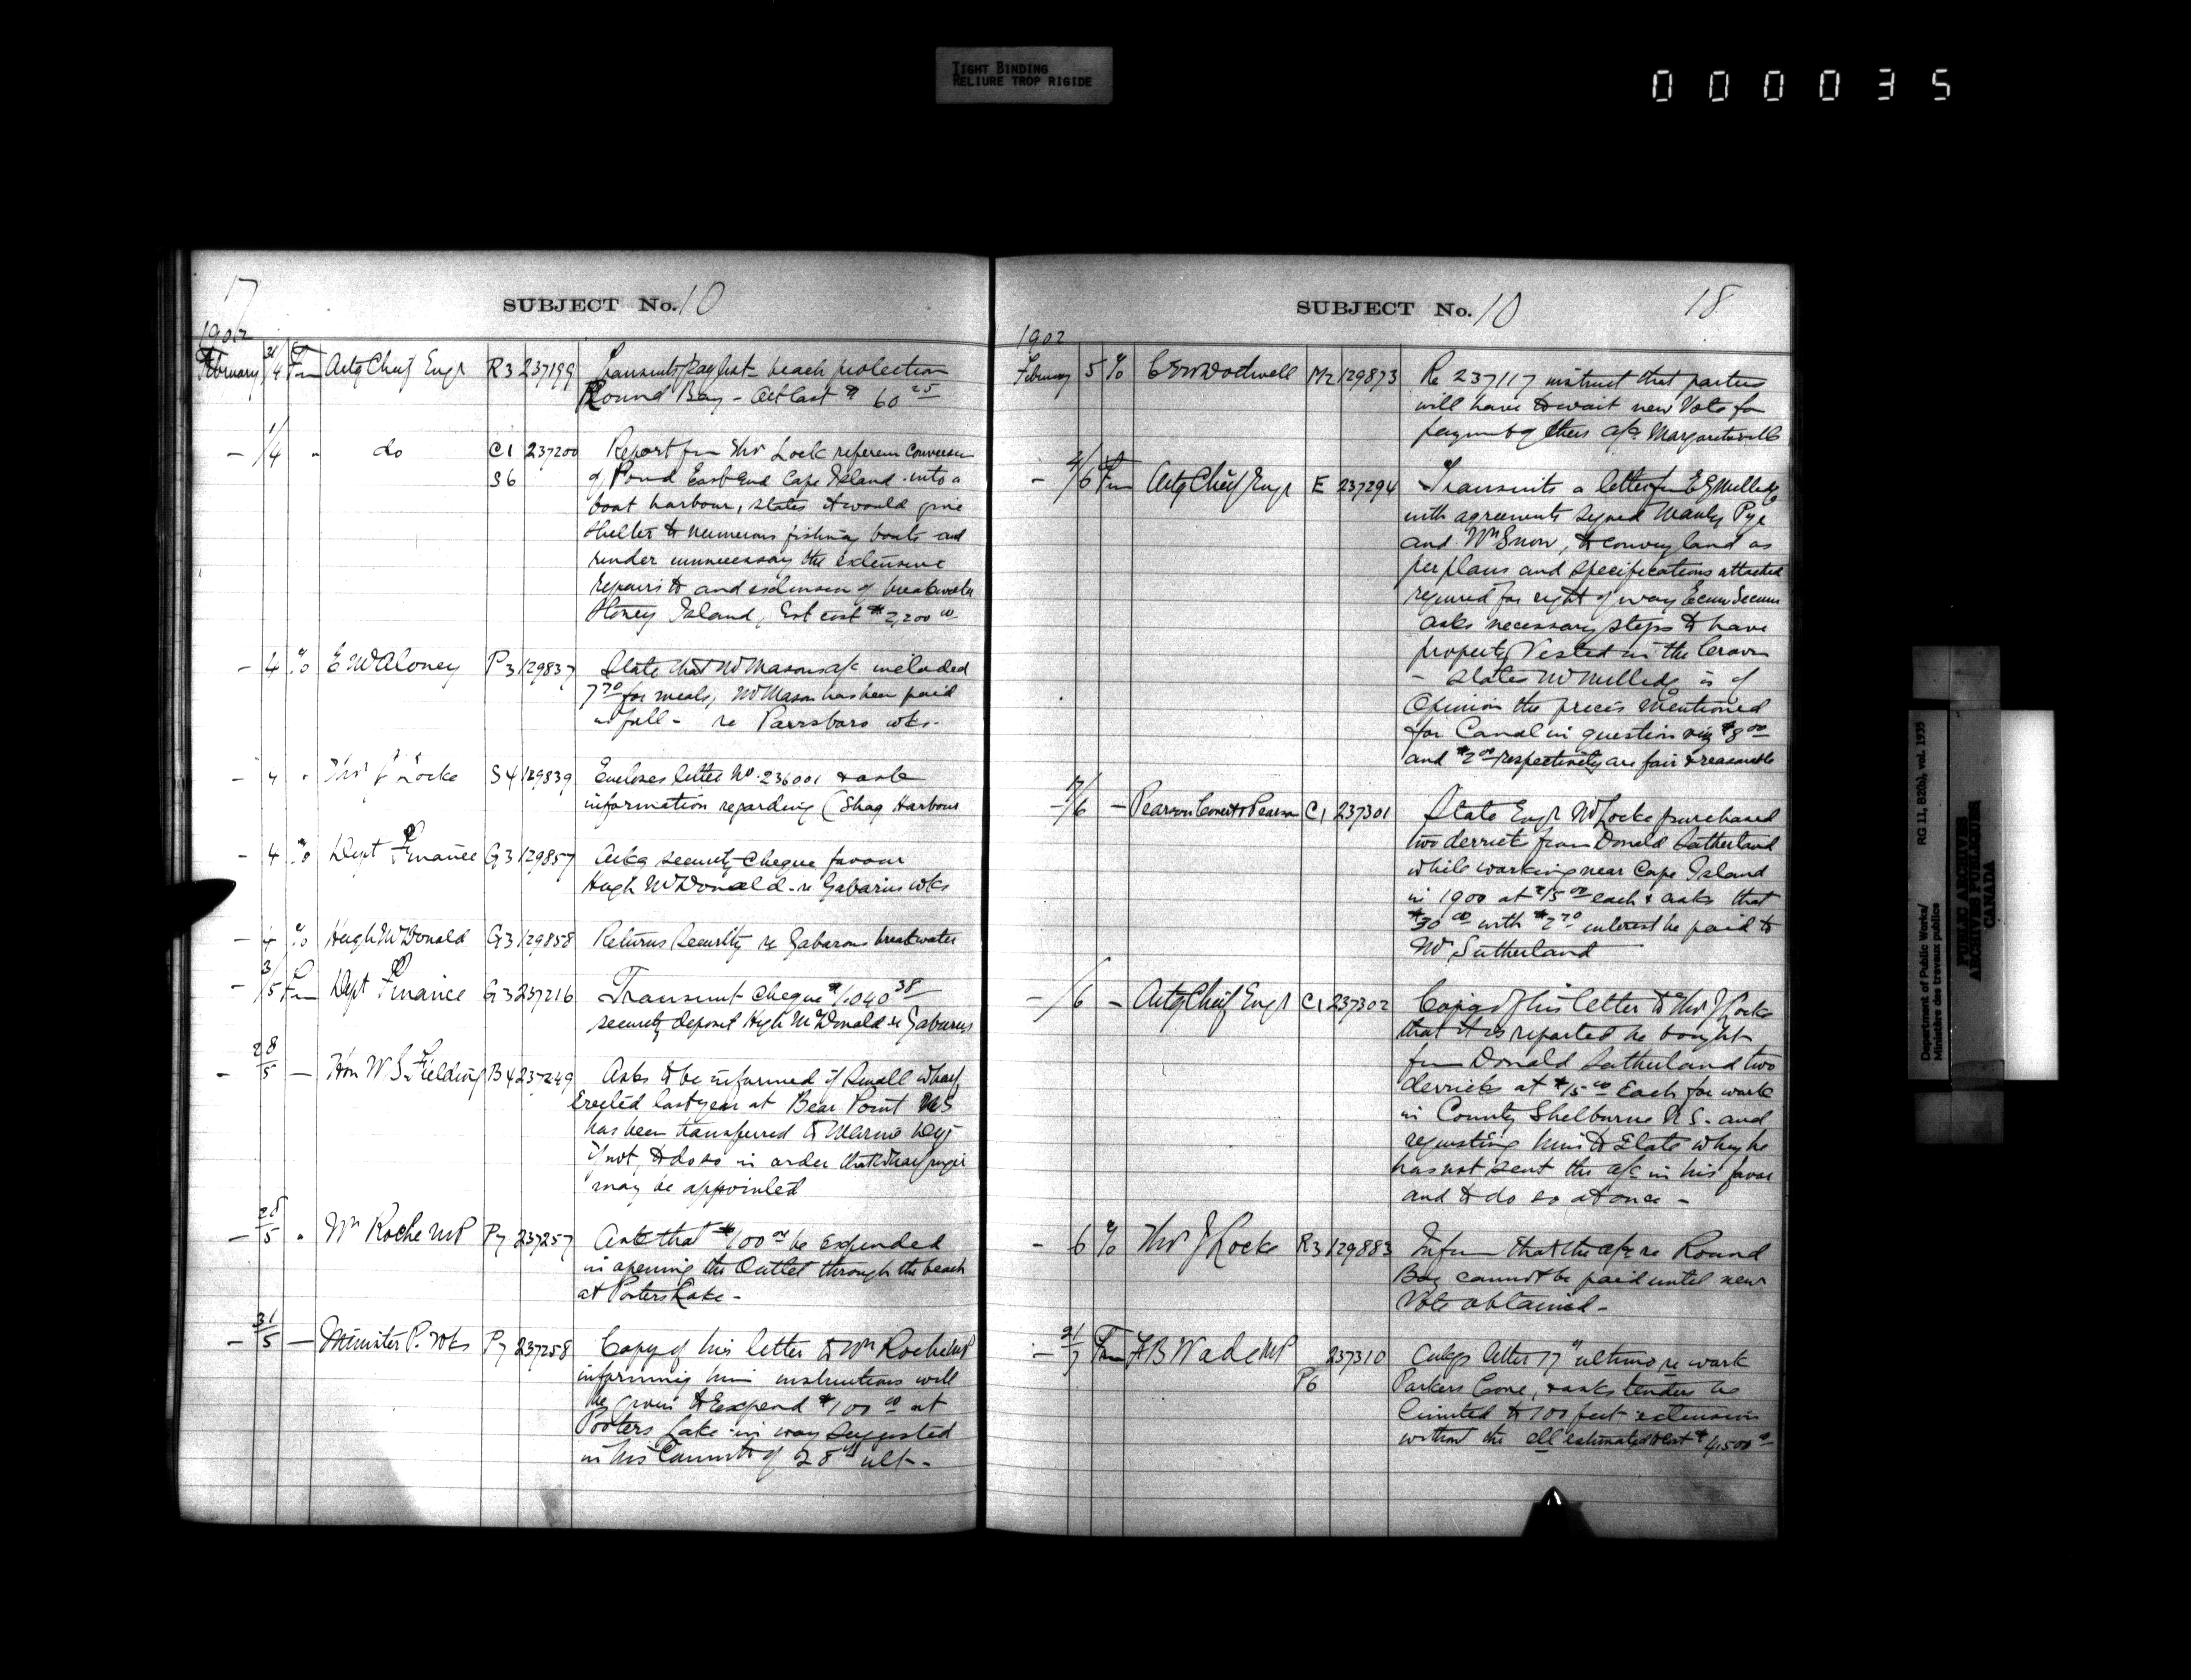 TIGHT BINDING
RELIURE TROP RIGIDE
000035
17
SUBJECT No. 10
1902
February 31/4 Fm Actg Chief Engr R3 237199 Transmits paylist beach protection
Round Bay - at last $60 25
- 1/4 " do C1 237200 Report from Thos Lock
S6 of Pond East End Cape Island into a
boat harbour, states it would give
shelter to numerous fishing boats and
render unnecessary the extensive
repairs to and extension of breakwater
Stoney Island, Est cost $2,200 00
- 4 To E W Aloney P3 129837 State that Mr Masons a/c included
7 70 for meals, Mr Mason has been paid
in full - re Parrsboro wks.
- 4 " Thos J Locke S4 129839 Encloses letter No. 236001 & ask
information regarding (Shag Harbour
- 4 To Dept Finance G3 129857 Asks security cheque favour
Hugh McDonald - re Gabarus wks
- 4 To Hugh McDonald G3 129858 Returns Security re Gabarus breakwater
- 3/5 Fm Dept Finance G3 237216 Transmit cheque $1,040 38
security deposit Hugh McDonald re Gabarus
- 28/5 - Hon W.S. Fielding B4 237249 Asks to be informed if small wharf
Erected last year at Bear Point NS
has been transferred to Marine Dept
if not, to do so in order that Wharfinger
may be appointed
- 28/5 " Wm Roche MP P7 237257 Ask that $100 00 be expended
in opening the Outlet through the beach
at Porters Lake -
- 31/5 - Minister P. Wks P7 237258 Copy of his letter to Wm Roche MP
informing him instructions will
be given to Expend $100 00 at
Porters Lake in way suggested
in his of 28th ult -
SUBJECT No. 10 18
1902
February 5 To Dodwell M2 129873 Re 237117 instruct that parties
will have to wait new Vote for
payment of their a/c Margaretsville
- 4/6 Fm Actg Chief Engr E 237294 Transmits a letter fm E G Milledge
with agreements signed Manly Pye
and Wm Snow, to convey land as
per plans and specifications attached
required for right of way Ecum Secum
asks necessary steps to have
property Vested in the Crown
- States Mr Milledge is of
Opinion the prices mentioned
for Canal in question viz $8 00
and $2 00 respectively are fair & reasonable
- /6 - Pearson Covert & Pearson C1 237301 State Engr Mr Locke purchased
two derricks from Donald Sutherland
while working near Cape Island
in 1900 at $15 00 each & asks that
$30 00 with $2 70 interest be paid to
Mr Sutherland
- /6 - Actg Chief Engr C1 237302 Copies of his letter to Thos J Locke
that it is reported he bought
from Donald Sutherland two
derricks at $15 00 Each for work
in County Shelburne N.S. and
requesting him to State why he
has not sent the a/c in his favor
and to do so at once -
- 6 To Thos J Locke R3 129883 Inform that the a/c re Round
Bay cannot be paid until new
Vote obtained -
- /7 Fm F B Wade MP 237310 letter 17" ultimo re work
P6 Parkers Cove, & asks tenders be
limited to 100 feet extension
without the ell estimated cost $4,500 00
Department of Public Works/ RG 11, B2(b), vol. 1935
Ministère des travaux publics
PUBLIC ARCHIVES
ARCHIVES PUBLIQUES
CANADA